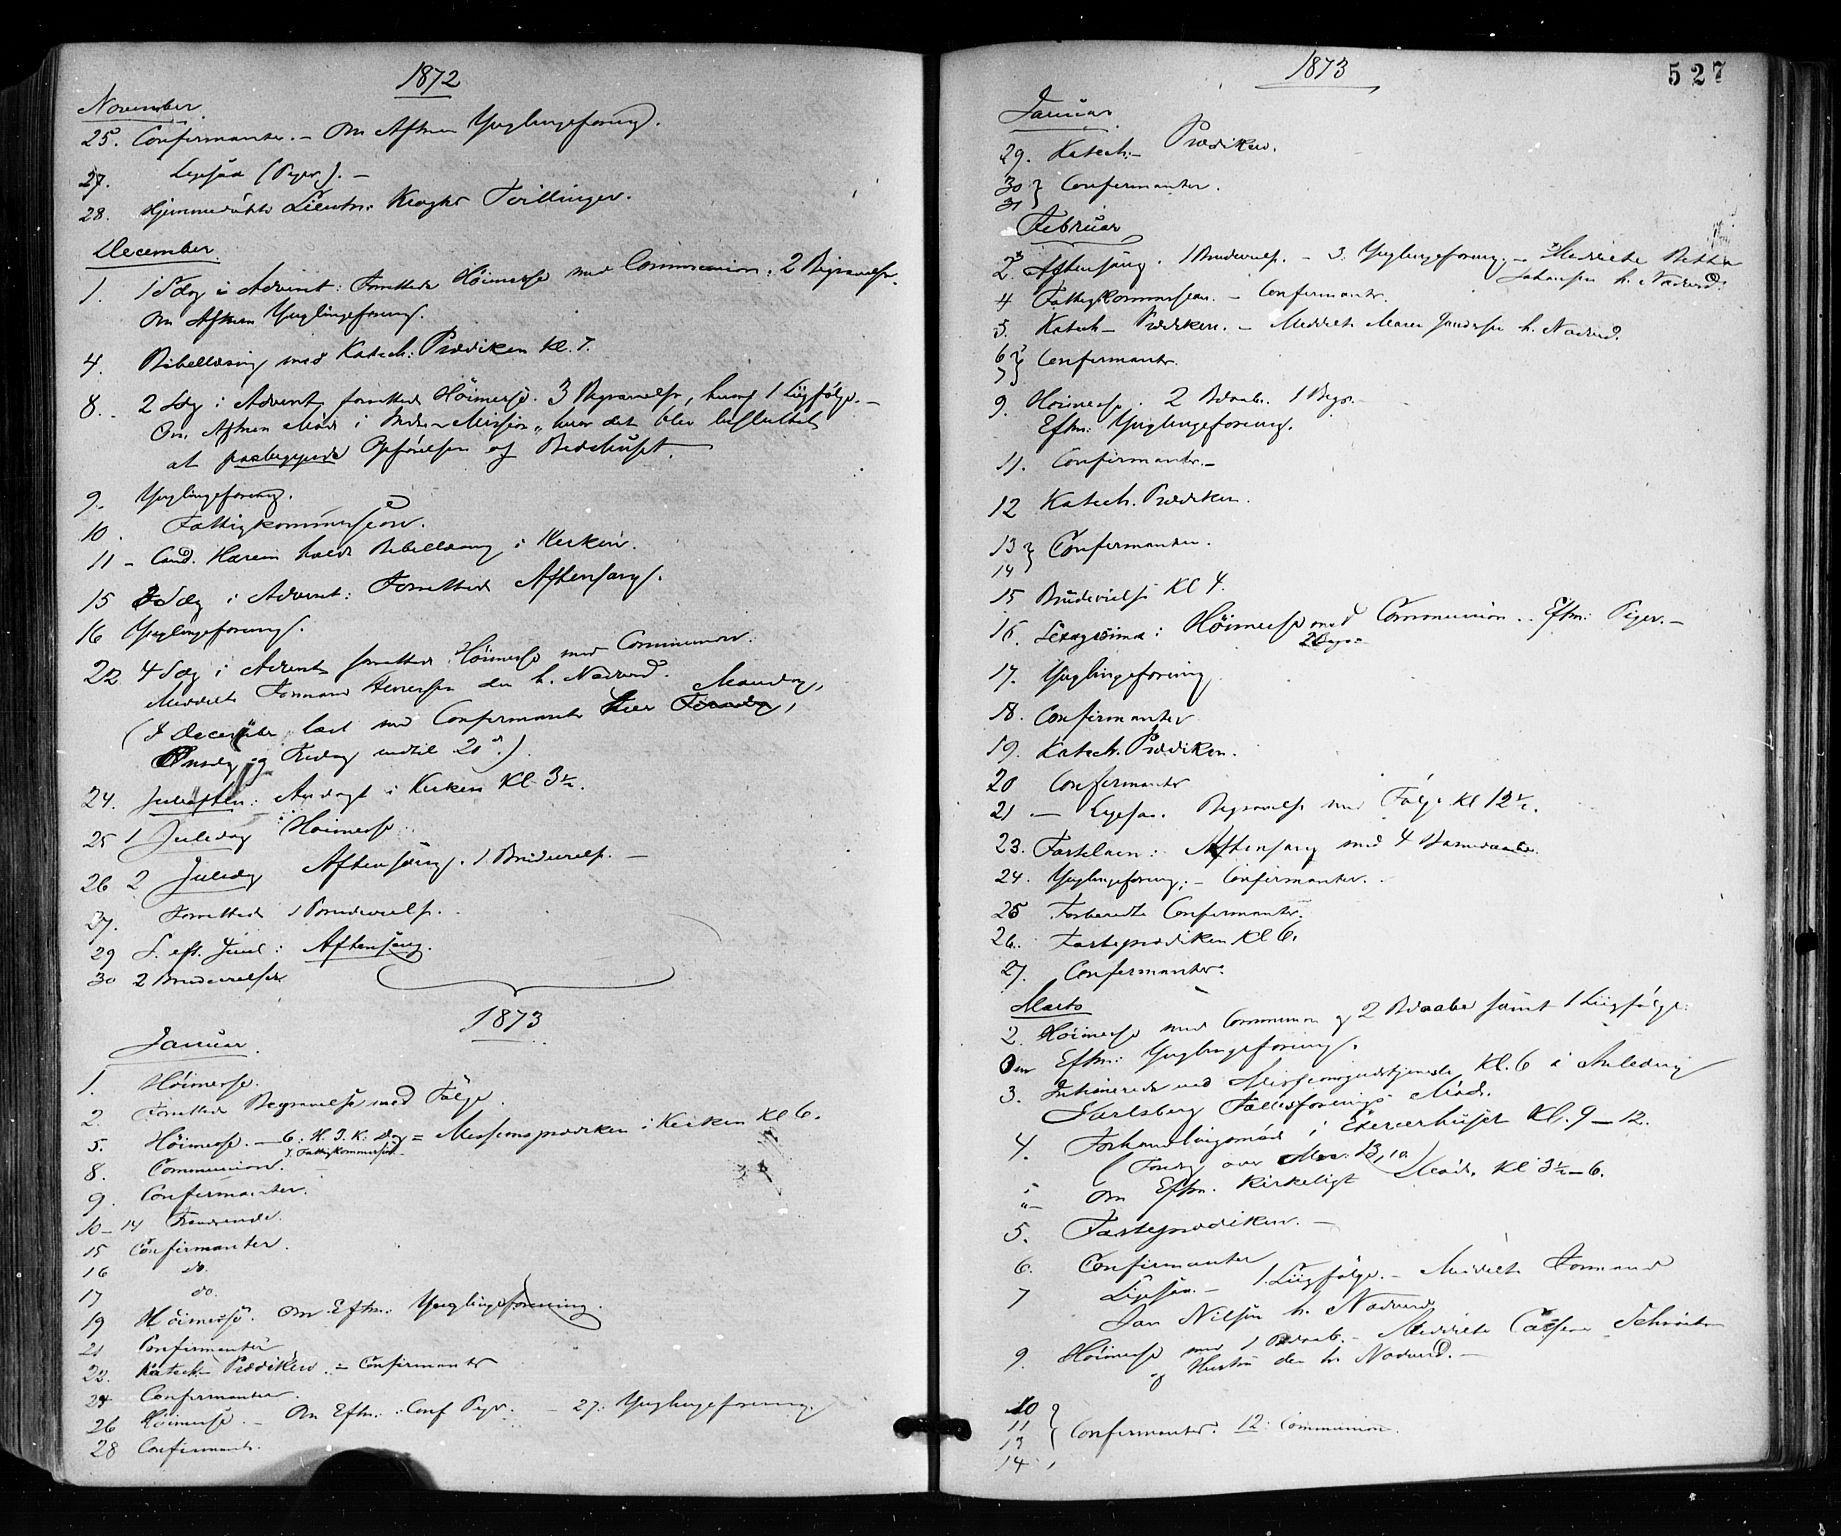 1872
November
25. Confirmanter. – Om Aftnen Ynglingeforeng.
27. Ligsaa (Piger). –
28. Hjemmedøbte Lieutn: Kroghs Tvillinger.
December
1. 1 Sdg i Advent: Forrettede Høimesse med Communion, 2 Begravelser.
Om Aftnen Ynglingeforeng.
4. Bibellæsning med Katech: Prædiken Kl. 7.
8. 2 Sdg i Advent, forrettede Høimesse. 3 Begravelser, hvoraf 1 Liigfølge. –
Om Aftnen Møde i Indre-Mission, hvor det blev besluttet
at paabegynde Opførelsen af Bedehuset.
9. Ynglingeforeng.
10. Fattigkommission.
11 – Cand. Harem holdt Bibellæsning i Kirken.
15 3 Sdg i Advent: Forrettede Aftensang.
16 Ynglingeforeng.
22 4 Sdg i Advent forrettede Høimesse med Communion.
Meddelte Formand den h. Nadverd.
(I December læst med Confirmanter hver Mandag,
Onsdag og Fredag indtil 20de.)
24. Juleaften: Andagt i Kirken Kl 3½.
25 1 Juledag Høimesse
26 2 Juledag Aftensang. 1 Brudevielse. –
27. Forrettede 1 Brudevielse.
29 S. eft. Juul: Aftensang.
30 2 Brudevielser
1873
Januar.
1. Høimesse.
2. Forrettede Begravelse med Følge.
5. Høimesse. – 6: H. 3. K. Dag = Missionsprædiken i Kirken Kl 6.
7. Fattigkommission
8. Communion.
9. Confirmanter.
10–14 Fraværende.
15 Confirmanter.
16 do.
17 do.
19 Høimesse. Om Eftm: Ynglingeforening.
21 Confirmanter
22. Katech. Prædiken. – Confirmanter
24 Confirmanter.
26 Høimesse. – Om Eftm: Conf Piger. – 27: Ynglingeforening.
28 Confirmanter.
1873
527
Januar
29. Katech:– Prædiken.
30 } Confirmanter.
31
Februar
2. Aftensang. 1 Brudevielse. – 3. Ynglingeforeng. – Meddelte Johansen h. Nadverd.
4 Fattigkommission. – Confirmanter.
5. Katech – Prædiken. – Meddelte Maren h. Nadverd.
6 } Confirmanter.
7
9. Høimesse. 2 Bdaab. 1 Begr. –
Eftm: Ynglingeforeng.
11. Confirmanter. –
12 Katech. Prædiken.
13 } Confirmanter.
14
15 Brudevielse Kl 4.
16. Sexagesima: Høimesse med Communion. Eftm: Piger. –
2 Begr.
17. Ynglingeforening.
18. Confirmanter
19. Katech. Prædiken.
20 Confirmanter
21 – Ligsaa. Begravelse med Følge Kl 12½.
23. Fastelavn: Aftensang med 4 Barnedaabe.
24. Ynglingeforeng; – Confirmanter.
25 Forberedte Confirmanter.
26. Fasteprædiken Kl 6.
27. Confirmanter.
Marts
2. Høimesse med Communion og 2 Bdaabe samt 1 Liigfølge.
Om Eftm: Ynglingeforening.
3. Intimerede ved Missionsgudstjeneste Kl. 6 i Anledning
Jarlsberg Fællesforenings Møde.
4. Forhandlingsmøde i Exercerhuset Kl. 9 – 12.
(Foredrag over
" – Om Eftm. Kirkeligt Møde, Kl 3½ – 6.
5. Fasteprædiken. –
6. Confirmanter
7 Ligsaa. – 1. Liigfølge. – Meddelte Formand
Jan Nilsen h. Nadverd.
9. Høimesse med 1 Bdaab. – Meddelte
og Hustru den h. Nadverd. –
10
11 } Confirmanter. 12: Communion.
13
14